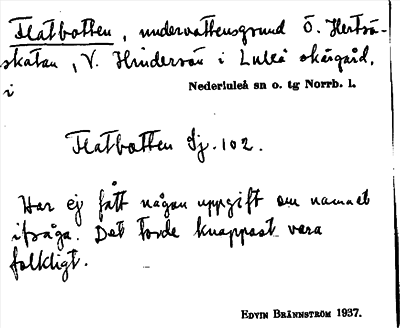 Flatbotten, undervattensgrund Ö. Hertsö-
skatan, V. Hindersön i Luleå skärgård,
i
Nederluleå sn o. tg Norrb. l.
Flatbotten Sj. 102.
Har ej fått någon uppgift om namnet
ifråga. Det torde knappast vara
folkligt.
EDVIN BRÄNNSTRÖM 1937.